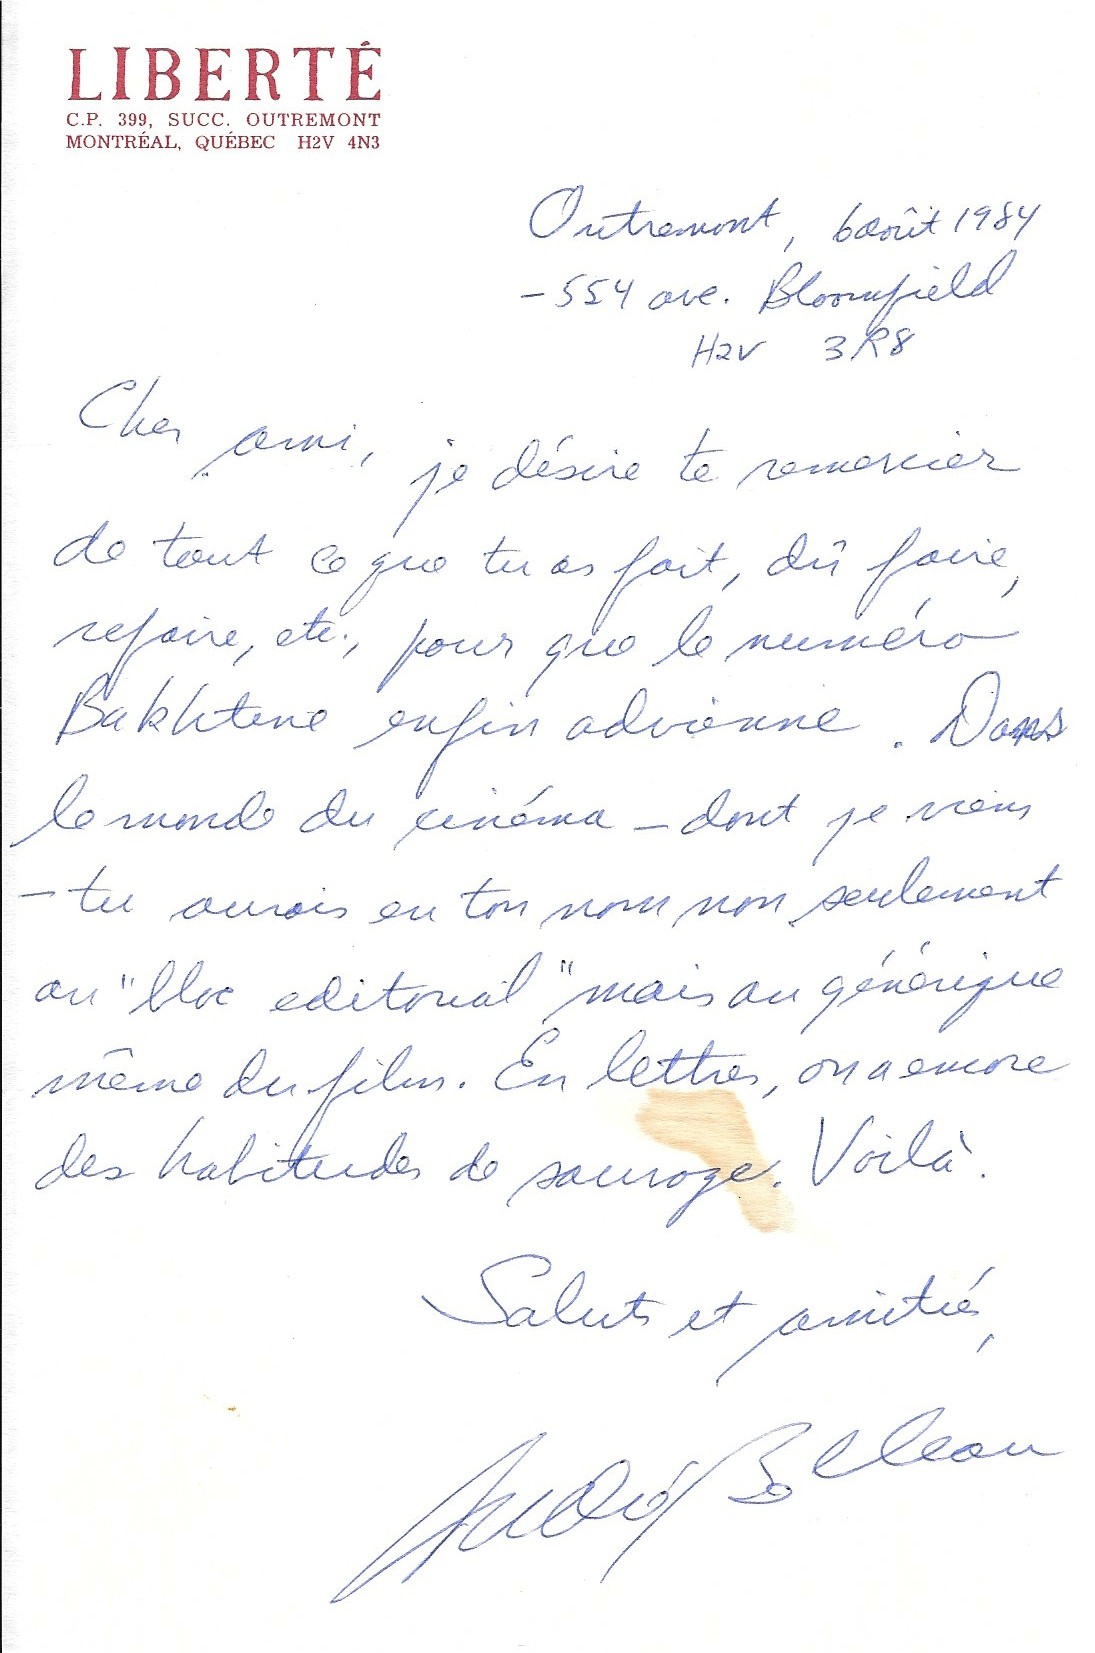 LIBERTÉ
C.P. 399, SUCC. OUTREMONT
MONTRÉAL, QUÉBEC H2V 4N3
Outremont, 6 août 1984
- 554 ave. Bloomfield
H2V 3R8
Cher ami, je désire te remercier
de tout ce que tu as fait, dû faire,
refaire, etc., pour que le numéro
Bakhtine enfin advienne. Dans
le monde du cinéma – dont je viens
– tu aurais eu ton nom non seulement
au "bloc editorial" mais au générique
même du film. En lettres, on a encore
des habitudes de sauvage. Voilà.
Saluts et amitiés,
André Belleau